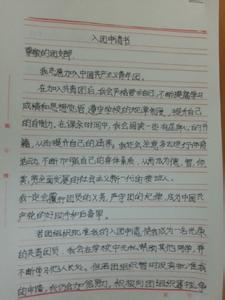 入团申请书
尊敬的团支部:
我志愿加入中国共产主义青年团。
在加入共青团后,我会严格要求自己,不断提高学习
成绩和思想觉悟,遵守学校的规章制度,提升自己
的自制力,在课余时间中,我会阅读一些有益身心的书
籍,从而提升自己的
活动,不断加强自己的身体素质,从而成为德、智、体、
美,全面发展的社会主义新一代的接班人。
我一定会履行团员的义务,严守团的纪律,成为中国共
产党的好助手和后备军。
若团组织批准我的入团申请,使我成为一名光荣
的共青团员,我会在学校中无私帮助其他同学,并
不断学习他人长处。但若团组织暂时没有批准我
的申请,我仍会加倍努力,积极向团组织靠拢,争